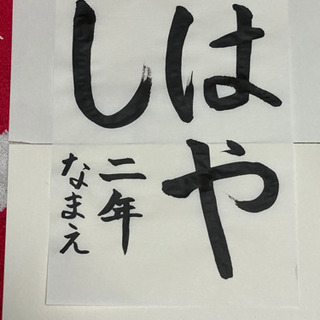 はや
し
二年
なまえ